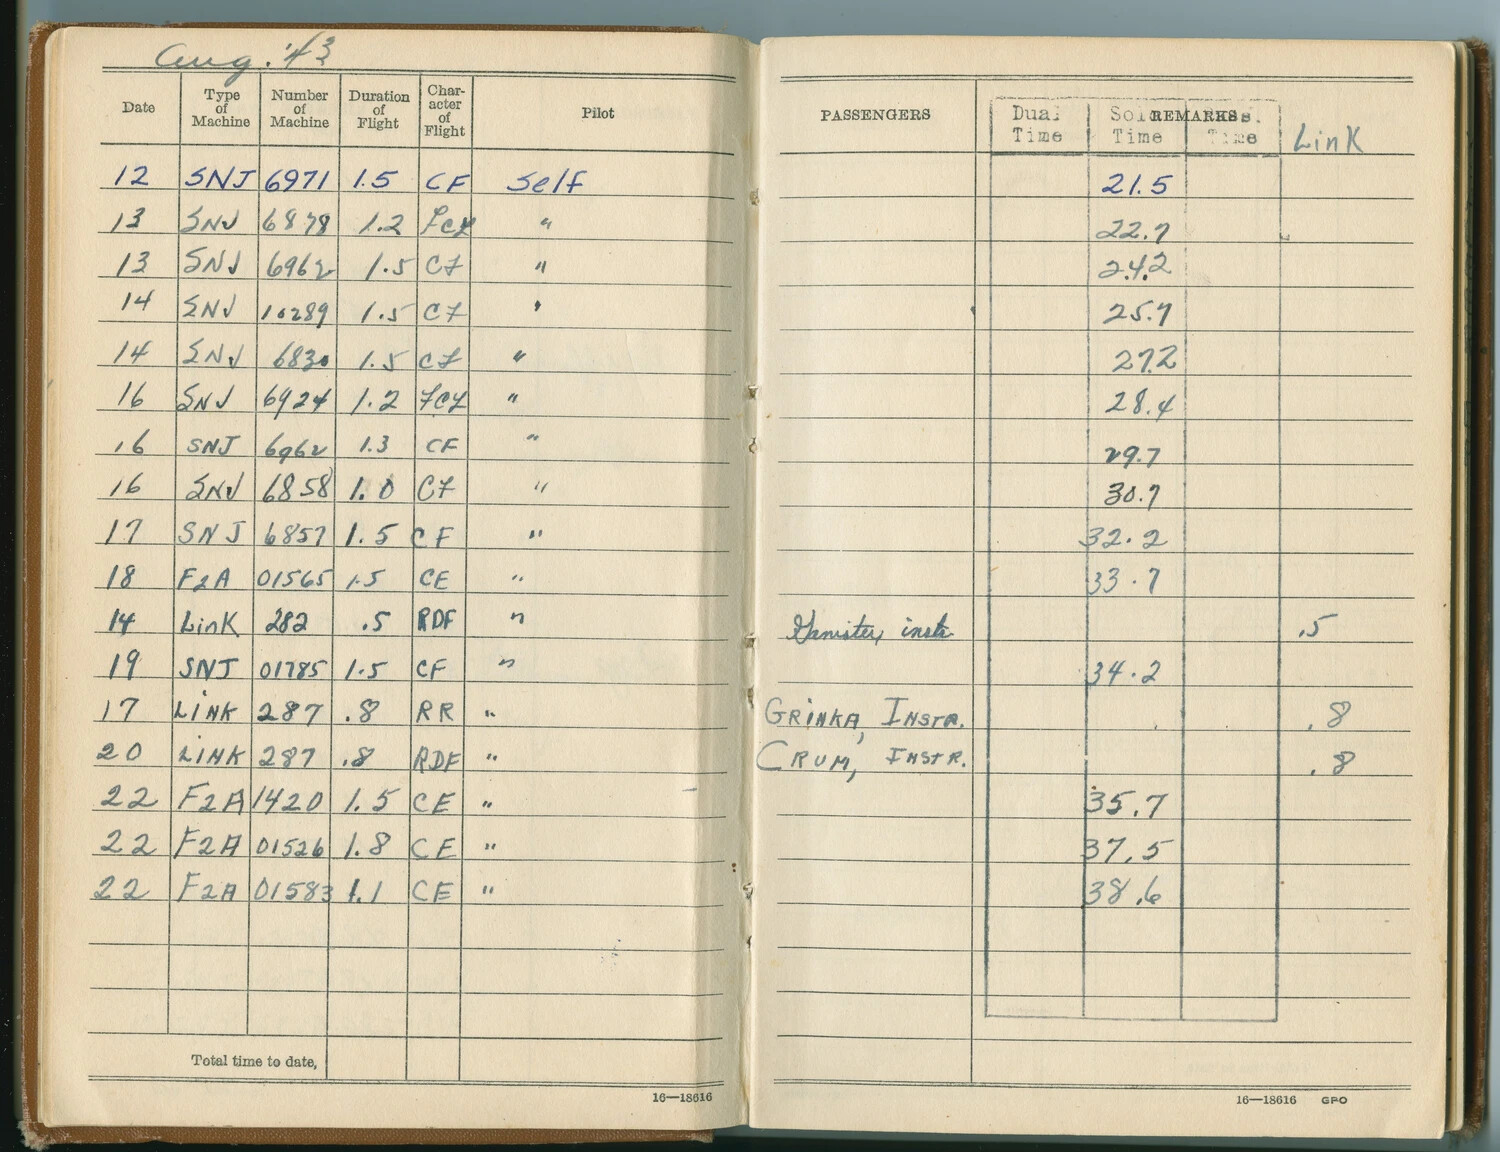 Aug. '43
Date Type of Machine Number of Machine Duration of Flight Char-acter of Flight Pilot
12 SNJ 6971 1.5 CF Self
13 SNJ 6878 1.2 FCF "
13 SNJ 6962 1.5 CF "
14 SNJ 10289 1.5 CF "
14 SNJ 6830 1.5 CF "
16 SNJ 6924 1.2 FCF "
16 SNJ 6962 1.3 CF "
16 SNJ 6858 1.0 CF "
17 SNJ 6857 1.5 CF "
18 F2A 01565 1.5 CE "
14 Link 282 .5 RDF "
19 SNJ 01785 1.5 CF "
17 LINK 287 .8 RR "
20 LINK 287 .8 RDF "
22 F2A 1420 1.5 CE "
22 F2A 01526 1.8 CE "
22 F2A 01583 1.1 CE "
Total time to date,
16—18616
PASSENGERS REMARKS
Dual Time Solo Time Time Link
21.5
22.7
24.2
25.7
27.2
28.4
29.7
30.7
32.2
33.7
instr. .5
34.2
GRINKA, INSTR. .8
CRUM, INSTR. .8
35.7
37.5
38.6
16—18616 GPO